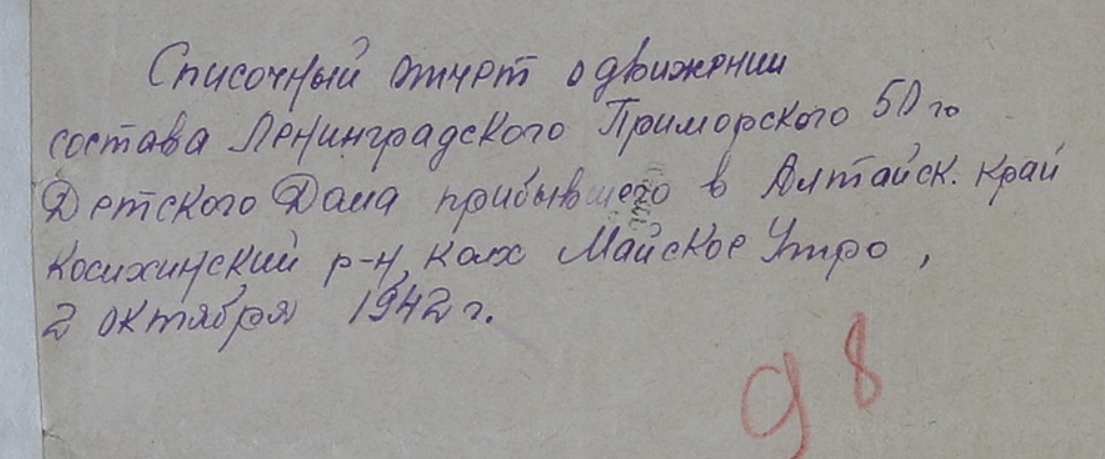 Списочный отчет о движении
состава Ленинградского Приморского 50 го
Детского Дома прибывшего в Алтайск. край
Косихинский р-н, колх Майское Утро,
2 октября 1942 г.
98